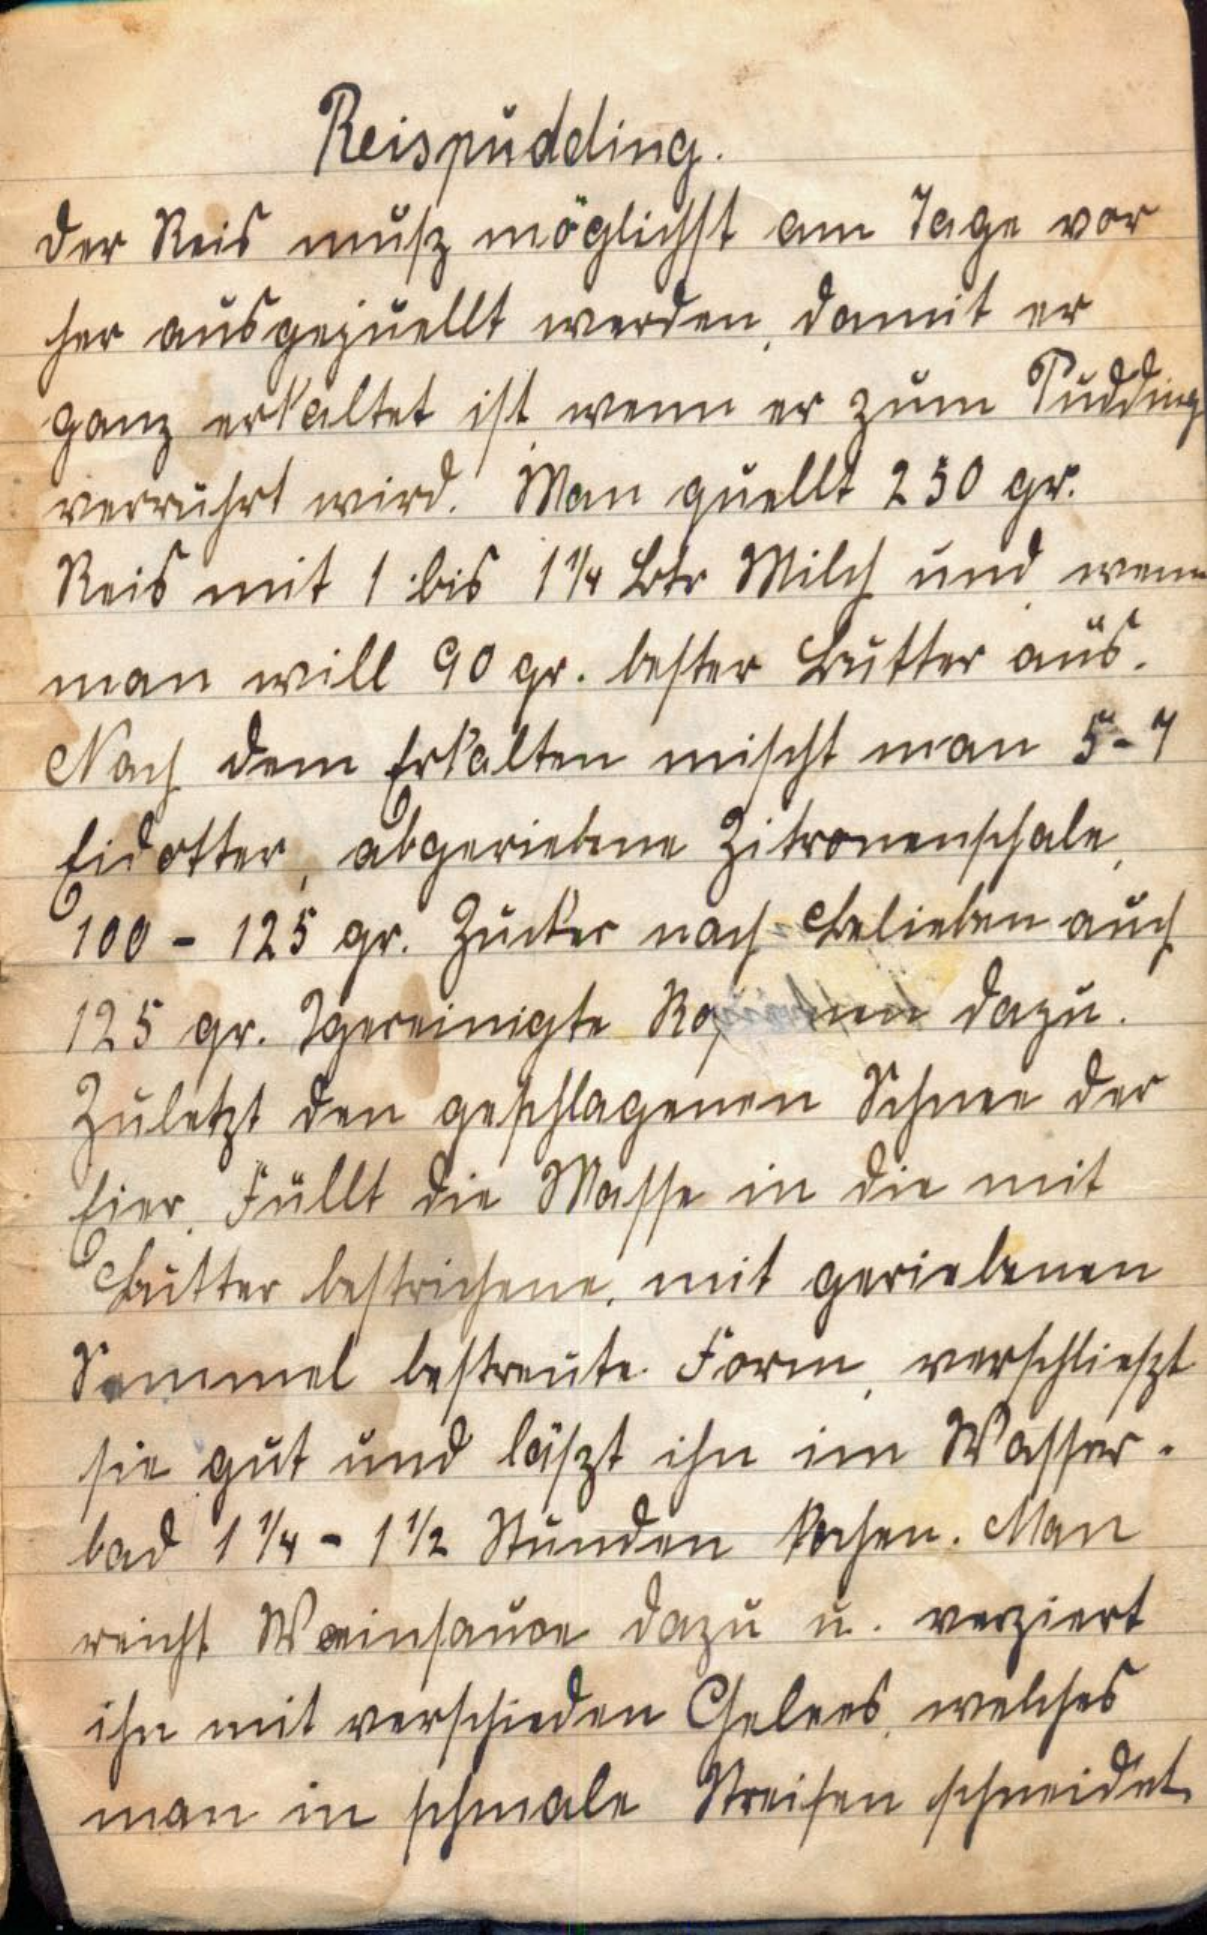 Reispudding.
Der Reis muß möglichst am Tage vor
her ausgequellt werden, damit er
ganz erkaltet ist wenn er zum Pudding
verrührt wird. Man quellt 250 gr.
Reis mit 1 bis 1 1/4 Ltr Milch und wenn
man will 90 gr. bester Butter aus.
Nach dem Erkalten mischt man 5-7
Eidotter, abgeriebene Zitronenschale,
100 - 125 gr. Zucker nach Belieben auch
125 gr. gereinigte dazu.
Zuletzt den geschlagenen Schnee der
Eier. Füllt die Masse in die mit
Butter bestrichene, mit geriebenen
Semmel bestreute Form, verschließt
sie gut und läßt ihn im Wasser-
bad 1 1/4 - 1 1/2 Stunden kochen. Man
reicht Weinsauce dazu u. verziert
ihn mit verschieden Gelees, welches
man in schmale Streifen schneidet